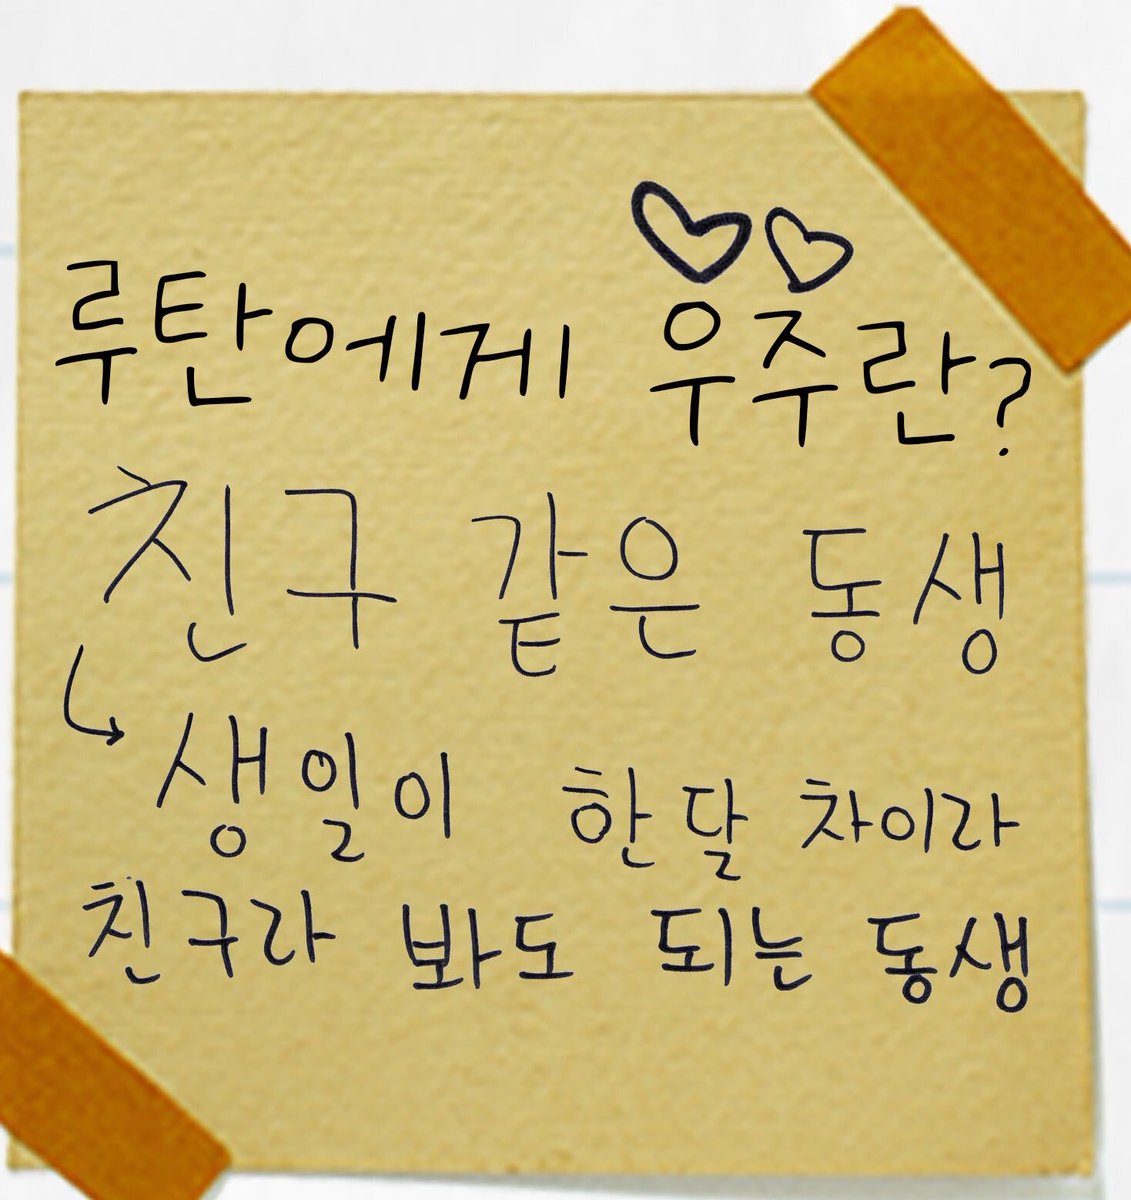 루탄에게 우주란?
친구 같은 동생
생일이 한달 차이라
친구라 봐도 되는 동생